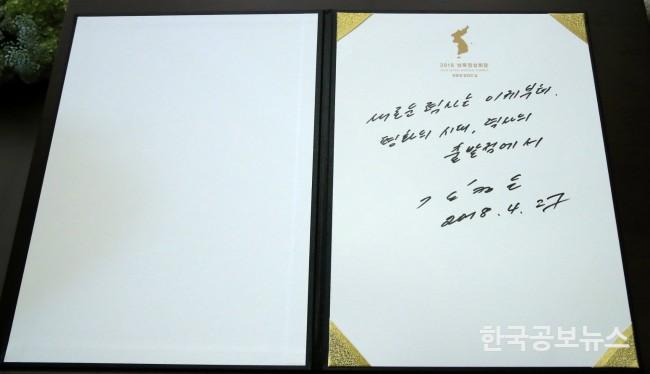 2018 남북정상회담
새로운 력사는 이제부터.
평화의 시대, 력사의
출발점에서
김정은
2018. 4. 27
한국공보뉴스